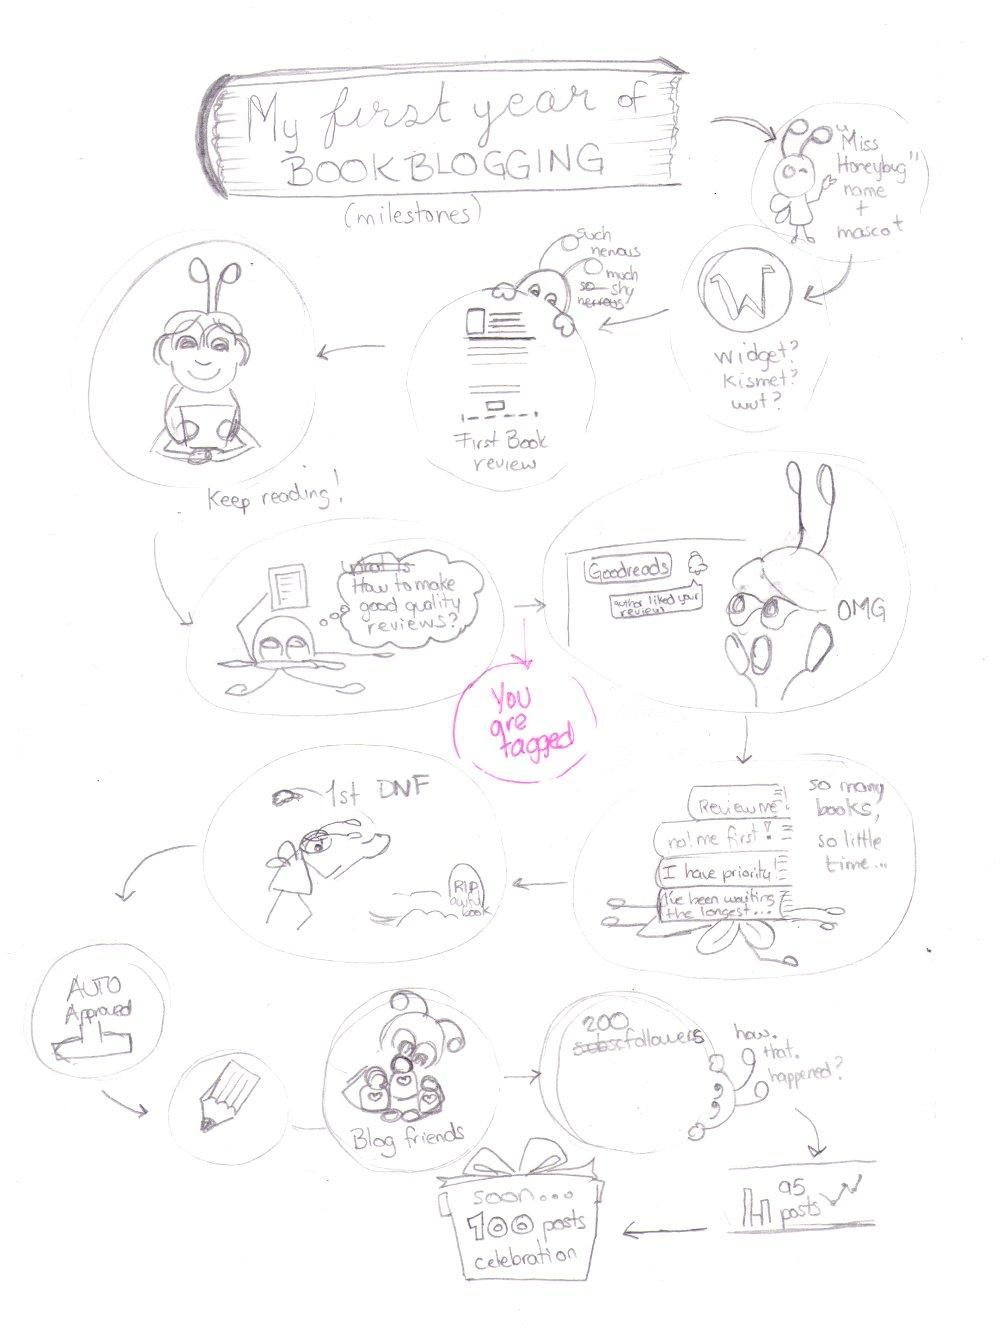 My first year of
BOOKBLOGGING
(milestones)
"Miss
Honeybug"
name
+
mascot
W
widget?
Kismet?
wut?
such
nervous
much
so shy
nervous
First Book
review
Keep reading!
What is
How to make
good quality
reviews?
Goodreads
author liked your
reviews
OMG
You
are
tagged
so many
books,
so little
time...
Review me
no! me first!
I have priority!
I've been waiting
the longest...
1st DNF
RIP
awful
book
AUTO
Approved
Blog friends
200
followers
how.
that.
happened?
95
posts
soon...
100 posts
celebration